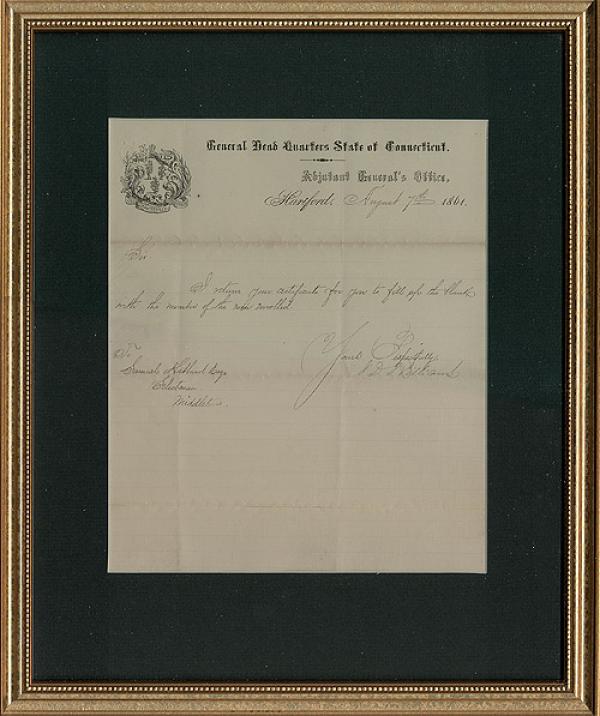 General Head Quarters State of Connecticut.
Adjutant General's Office,
Hartford, August 7th 1861.
Sir
I return your certificate for you to fill up the blank
with the number of the men enrolled.
Yours Respectfully
To
Samuel Esqr
Selectman
Middletown.